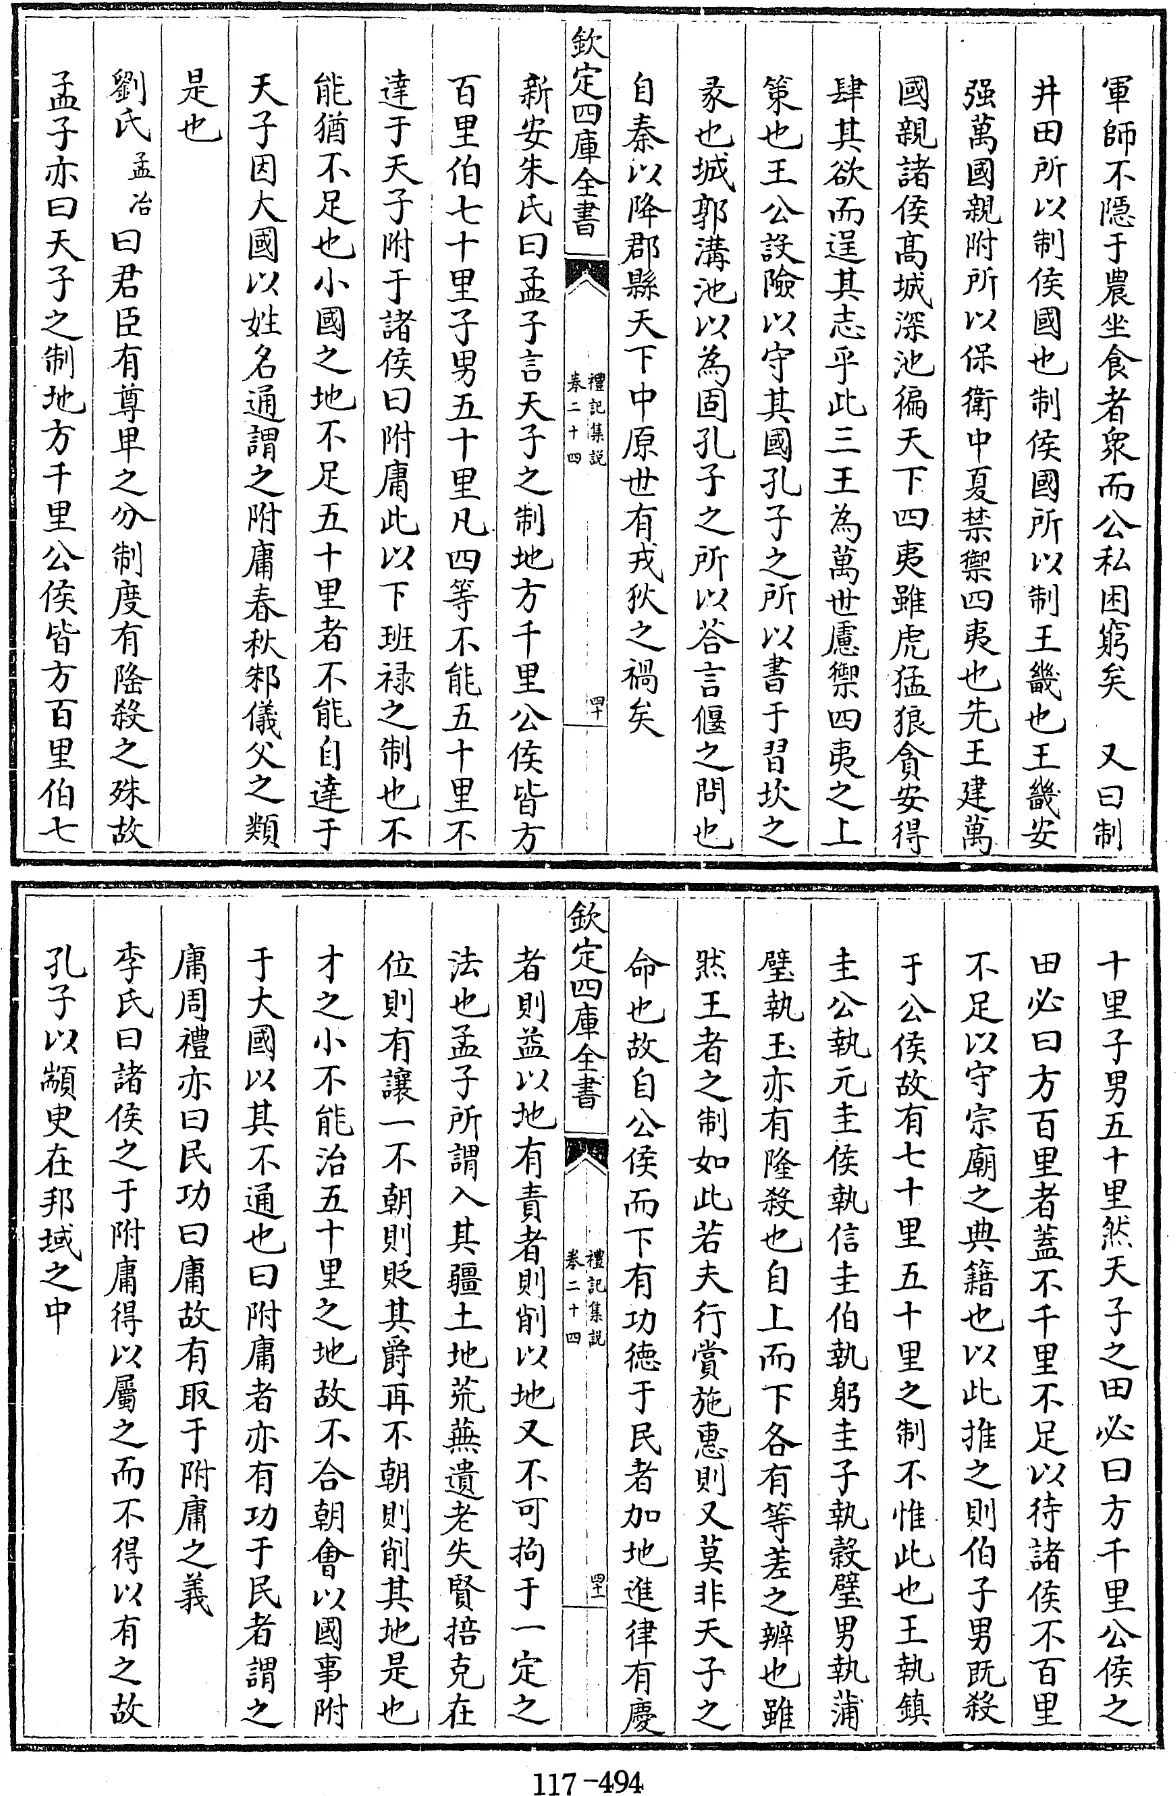 軍師不隱于農坐食者衆而公私困窮矣　又曰制
井田所以制侯國也制侯國所以制王畿也王畿安
强萬國親附所以保衛中夏禁禦四夷也先王建萬
國親諸侯髙城深池徧天下四夷雖虎猛狼貪安得
肆其欲而逞其志乎此三王為萬世慮禦四夷之上
策也王公設險以守其國孔子之所以書于習坎之
彖也城郭溝池以為固孔子之所以答言偃之問也
自秦以降郡縣天下中原世有戎狄之禍矣
欽定四庫全書
禮記集説
卷二十四
四十
新安朱氏曰孟子言天子之制地方千里公侯皆方
百里伯七十里子男五十里凡四等不能五十里不
達于天子附于諸侯曰附庸此以下班禄之制也不
能猶不足也小國之地不足五十里者不能自達于
天子因大國以姓名通謂之附庸春秋邾儀父之類
是也
劉氏孟冶曰君臣有尊卑之分制度有隆殺之殊故
孟子亦曰天子之制地方千里公侯皆方百里伯七
十里子男五十里然天子之田必曰方千里公侯之
田必曰方百里者蓋不千里不足以待諸侯不百里
不足以守宗廟之典籍也以此推之則伯子男既殺
于公侯故有七十里五十里之制不惟此也王執鎮
圭公執元圭侯執信圭伯執躬圭子執穀璧男執蒲
璧執玉亦有隆殺也自上而下各有等差之辨也雖
然王者之制如此若夫行賞施惠則又莫非天子之
命也故自公侯而下有功德于民者加地進律有慶
欽定四庫全書
禮記集説
卷二十四
四十一
者則益以地有責者則削以地又不可拘于一定之
法也孟子所謂入其疆土地荒蕪遺老失賢掊克在
位則有讓一不朝則貶其爵再不朝則削其地是也
才之小不能治五十里之地故不合朝會以國事附
于大國以其不通也曰附庸者亦有功于民者謂之
庸周禮亦曰民功曰庸故有取于附庸之義
李氏曰諸侯之于附庸得以屬之而不得以有之故
孔子以顓臾在邦域之中
117-494